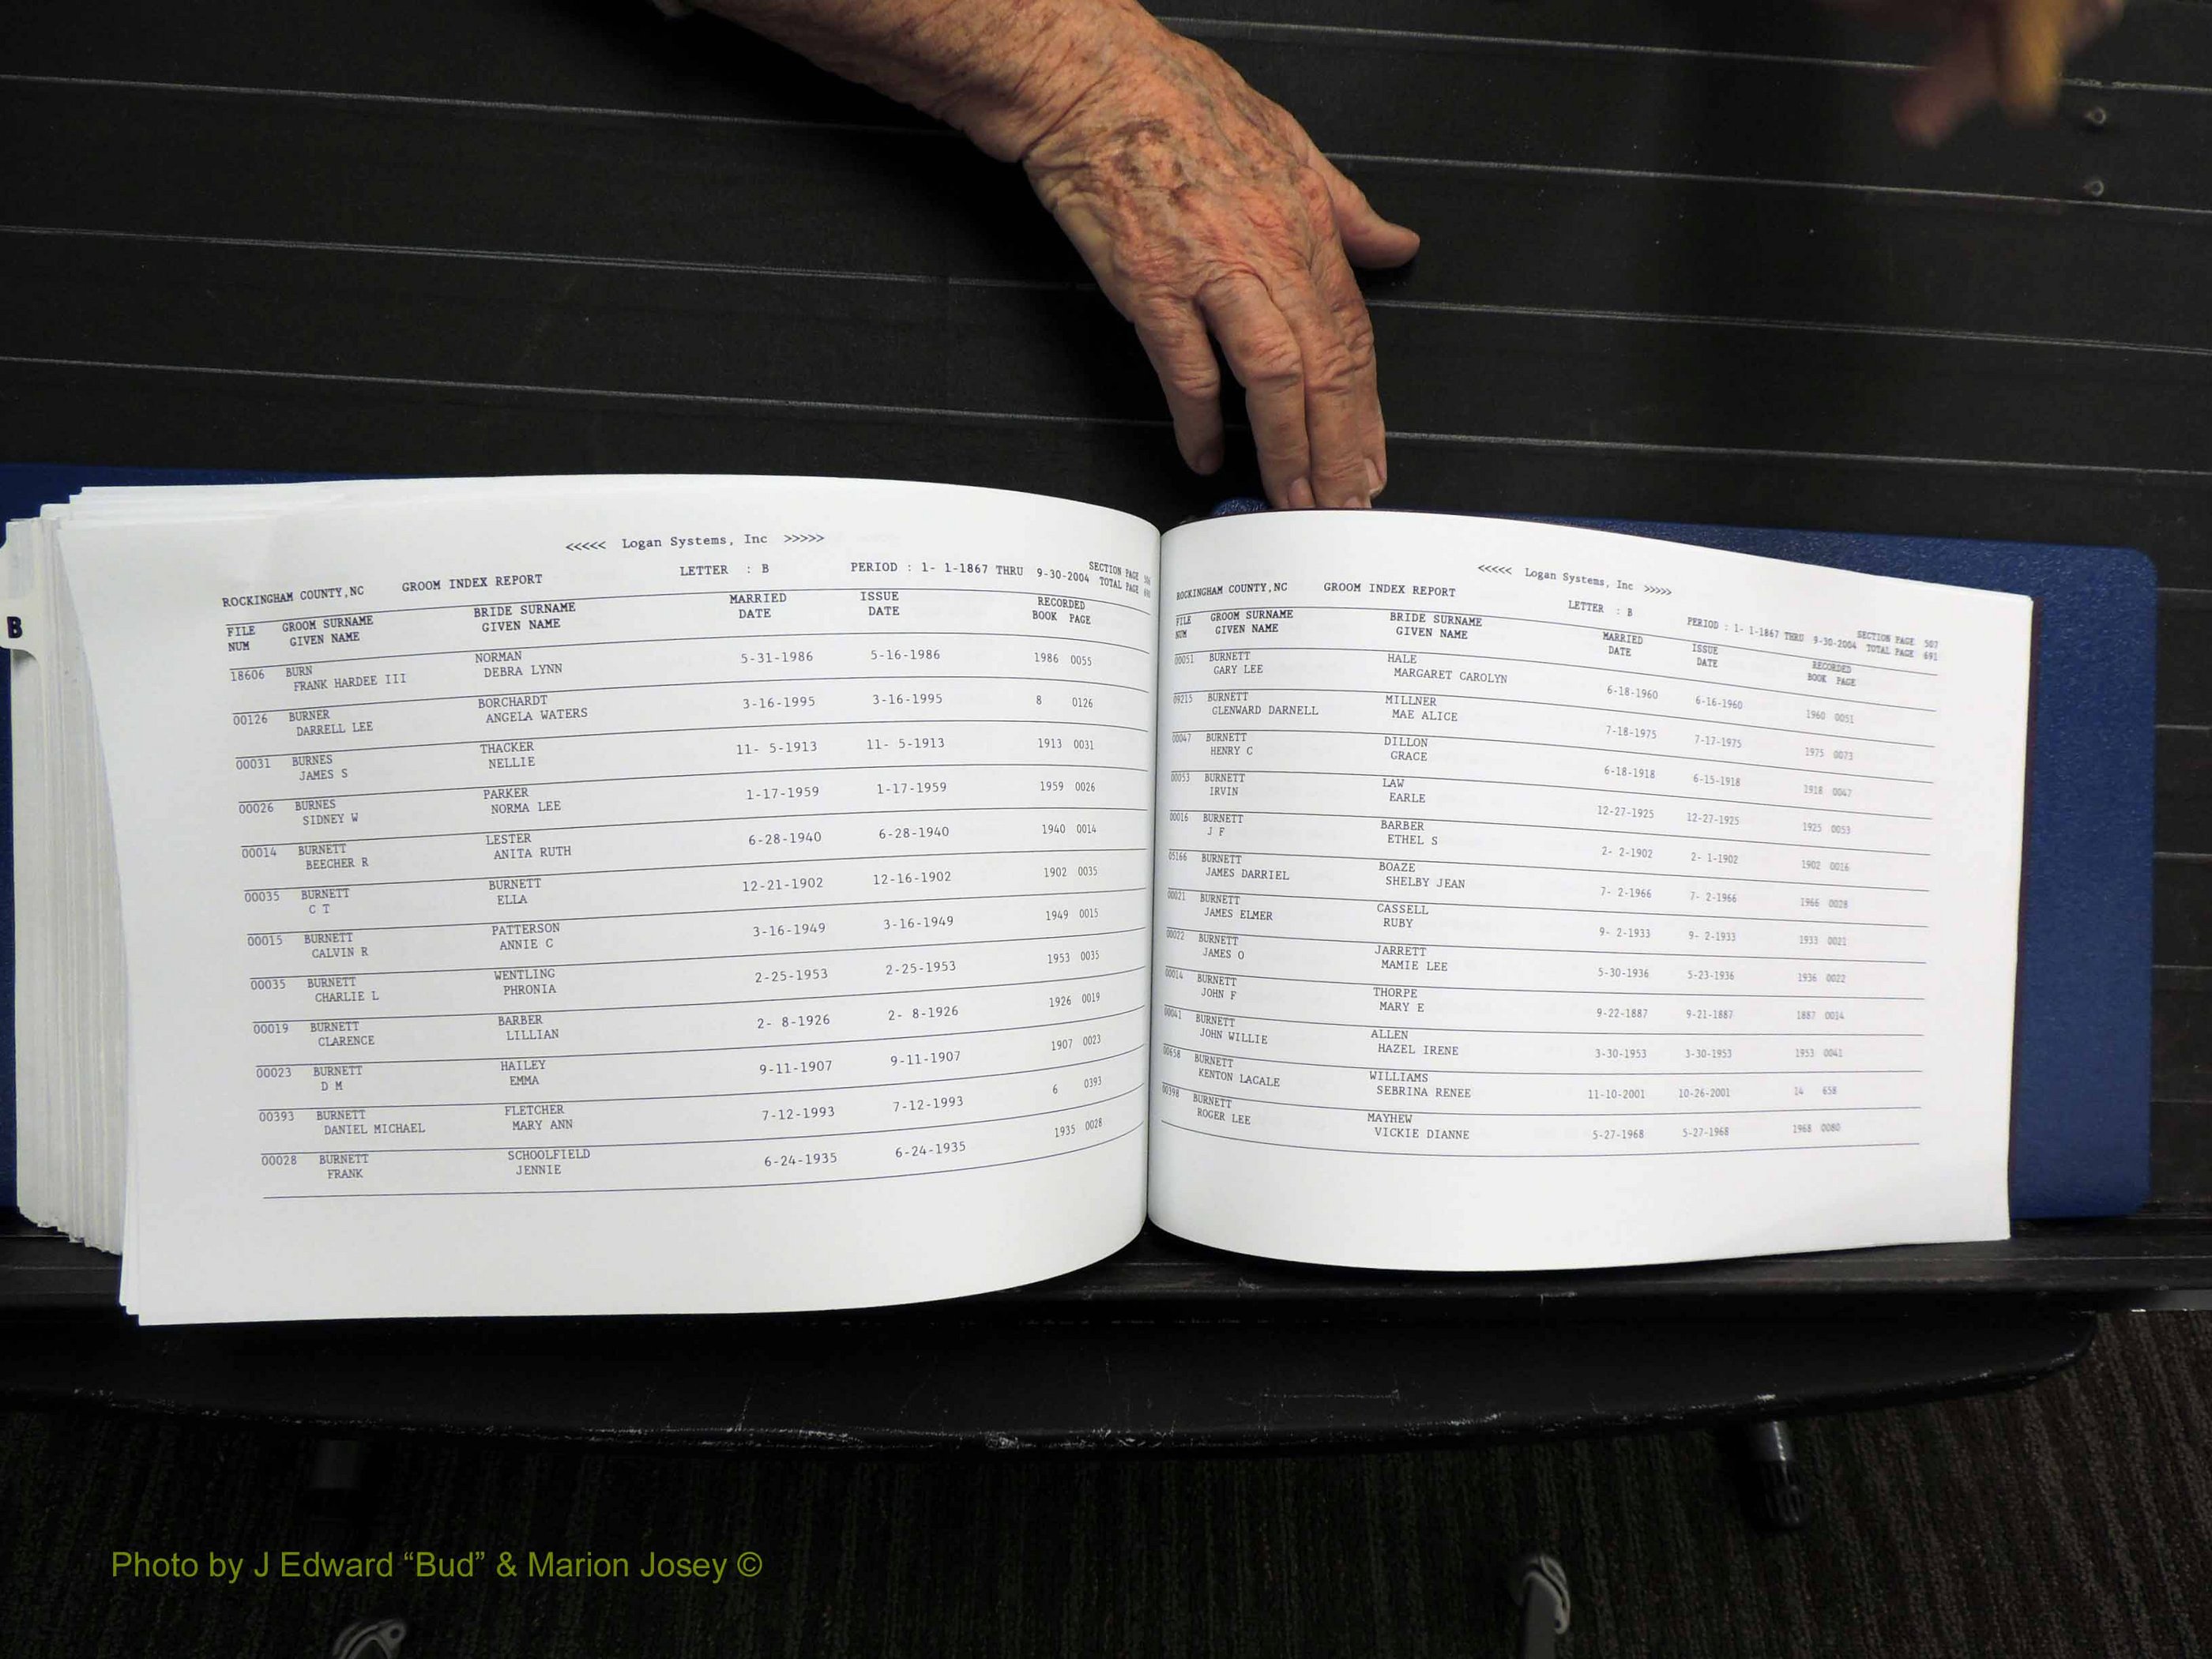 B
<<<<< Logan Systems, Inc >>>>>
ROCKINGHAM COUNTY,NC GROOM INDEX REPORT LETTER : B PERIOD : 1- 1-1867 THRU 9-30-2004 SECTION PAGE
TOTAL PAGE
FILE GROOM SURNAME BRIDE SURNAME MARRIED ISSUE RECORDED
NUM GIVEN NAME GIVEN NAME DATE DATE BOOK PAGE
18606 BURN NORMAN 5-31-1986 5-16-1986 1986 0055
FRANK HARDEE III DEBRA LYNN
00126 BURNER BORCHARDT 3-16-1995 3-16-1995 8 0126
DARRELL LEE ANGELA WATERS
00031 BURNES THACKER 11- 5-1913 11- 5-1913 1913 0031
JAMES S NELLIE
00026 BURNES PARKER 1-17-1959 1-17-1959 1959 0026
SIDNEY W NORMA LEE
00014 BURNETT LESTER 6-28-1940 6-28-1940 1940 0014
BEECHER R ANITA RUTH
00035 BURNETT BURNETT 12-21-1902 12-16-1902 1902 0035
C T ELLA
00015 BURNETT PATTERSON 3-16-1949 3-16-1949 1949 0015
CALVIN R ANNIE C
00035 BURNETT WENTLING 2-25-1953 2-25-1953 1953 0035
CHARLIE L PHRONIA
00019 BURNETT BARBER 2- 8-1926 2- 8-1926 1926 0019
CLARENCE LILLIAN
00023 BURNETT HAILEY 9-11-1907 9-11-1907 1907 0023
D M EMMA
00393 BURNETT FLETCHER 7-12-1993 7-12-1993 6 0393
DANIEL MICHAEL MARY ANN
00028 BURNETT SCHOOLFIELD 6-24-1935 6-24-1935 1935 0028
FRANK JENNIE
<<<<< Logan Systems, Inc >>>>>
ROCKINGHAM COUNTY,NC GROOM INDEX REPORT LETTER : B PERIOD : 1- 1-1867 THRU 9-30-2004 SECTION PAGE 507
TOTAL PAGE 691
FILE GROOM SURNAME BRIDE SURNAME MARRIED ISSUE RECORDED
NUM GIVEN NAME GIVEN NAME DATE DATE BOOK PAGE
00051 BURNETT HALE 6-18-1960 6-16-1960 1960 0051
GARY LEE MARGARET CAROLYN
09215 BURNETT MILLNER 7-18-1975 7-17-1975 1975 0073
GLENWARD DARNELL MAE ALICE
00047 BURNETT DILLON 6-18-1918 6-15-1918 1918 0047
HENRY C GRACE
00053 BURNETT LAW 12-27-1925 12-27-1925 1925 0053
IRVIN EARLE
00016 BURNETT BARBER 2- 2-1902 2- 1-1902 1902 0016
J F ETHEL S
05166 BURNETT BOAZE 7- 2-1966 7- 2-1966 1966 0028
JAMES DARRIEL SHELBY JEAN
00021 BURNETT CASSELL 9- 2-1933 9- 2-1933 1933 0021
JAMES ELMER RUBY
00022 BURNETT JARRETT 5-30-1936 5-23-1936 1936 0022
JAMES O MAMIE LEE
00014 BURNETT THORPE 9-22-1887 9-21-1887 1887 0014
JOHN F MARY E
00041 BURNETT ALLEN 3-30-1953 3-30-1953 1953 0041
JOHN WILLIE HAZEL IRENE
00658 BURNETT WILLIAMS 11-10-2001 10-26-2001 14 658
KENTON LACALE SEBRINA RENEE
00398 BURNETT MAYHEW 5-27-1968 5-27-1968 1968 0080
ROGER LEE VICKIE DIANNE
Photo by J Edward “Bud” & Marion Josey ©